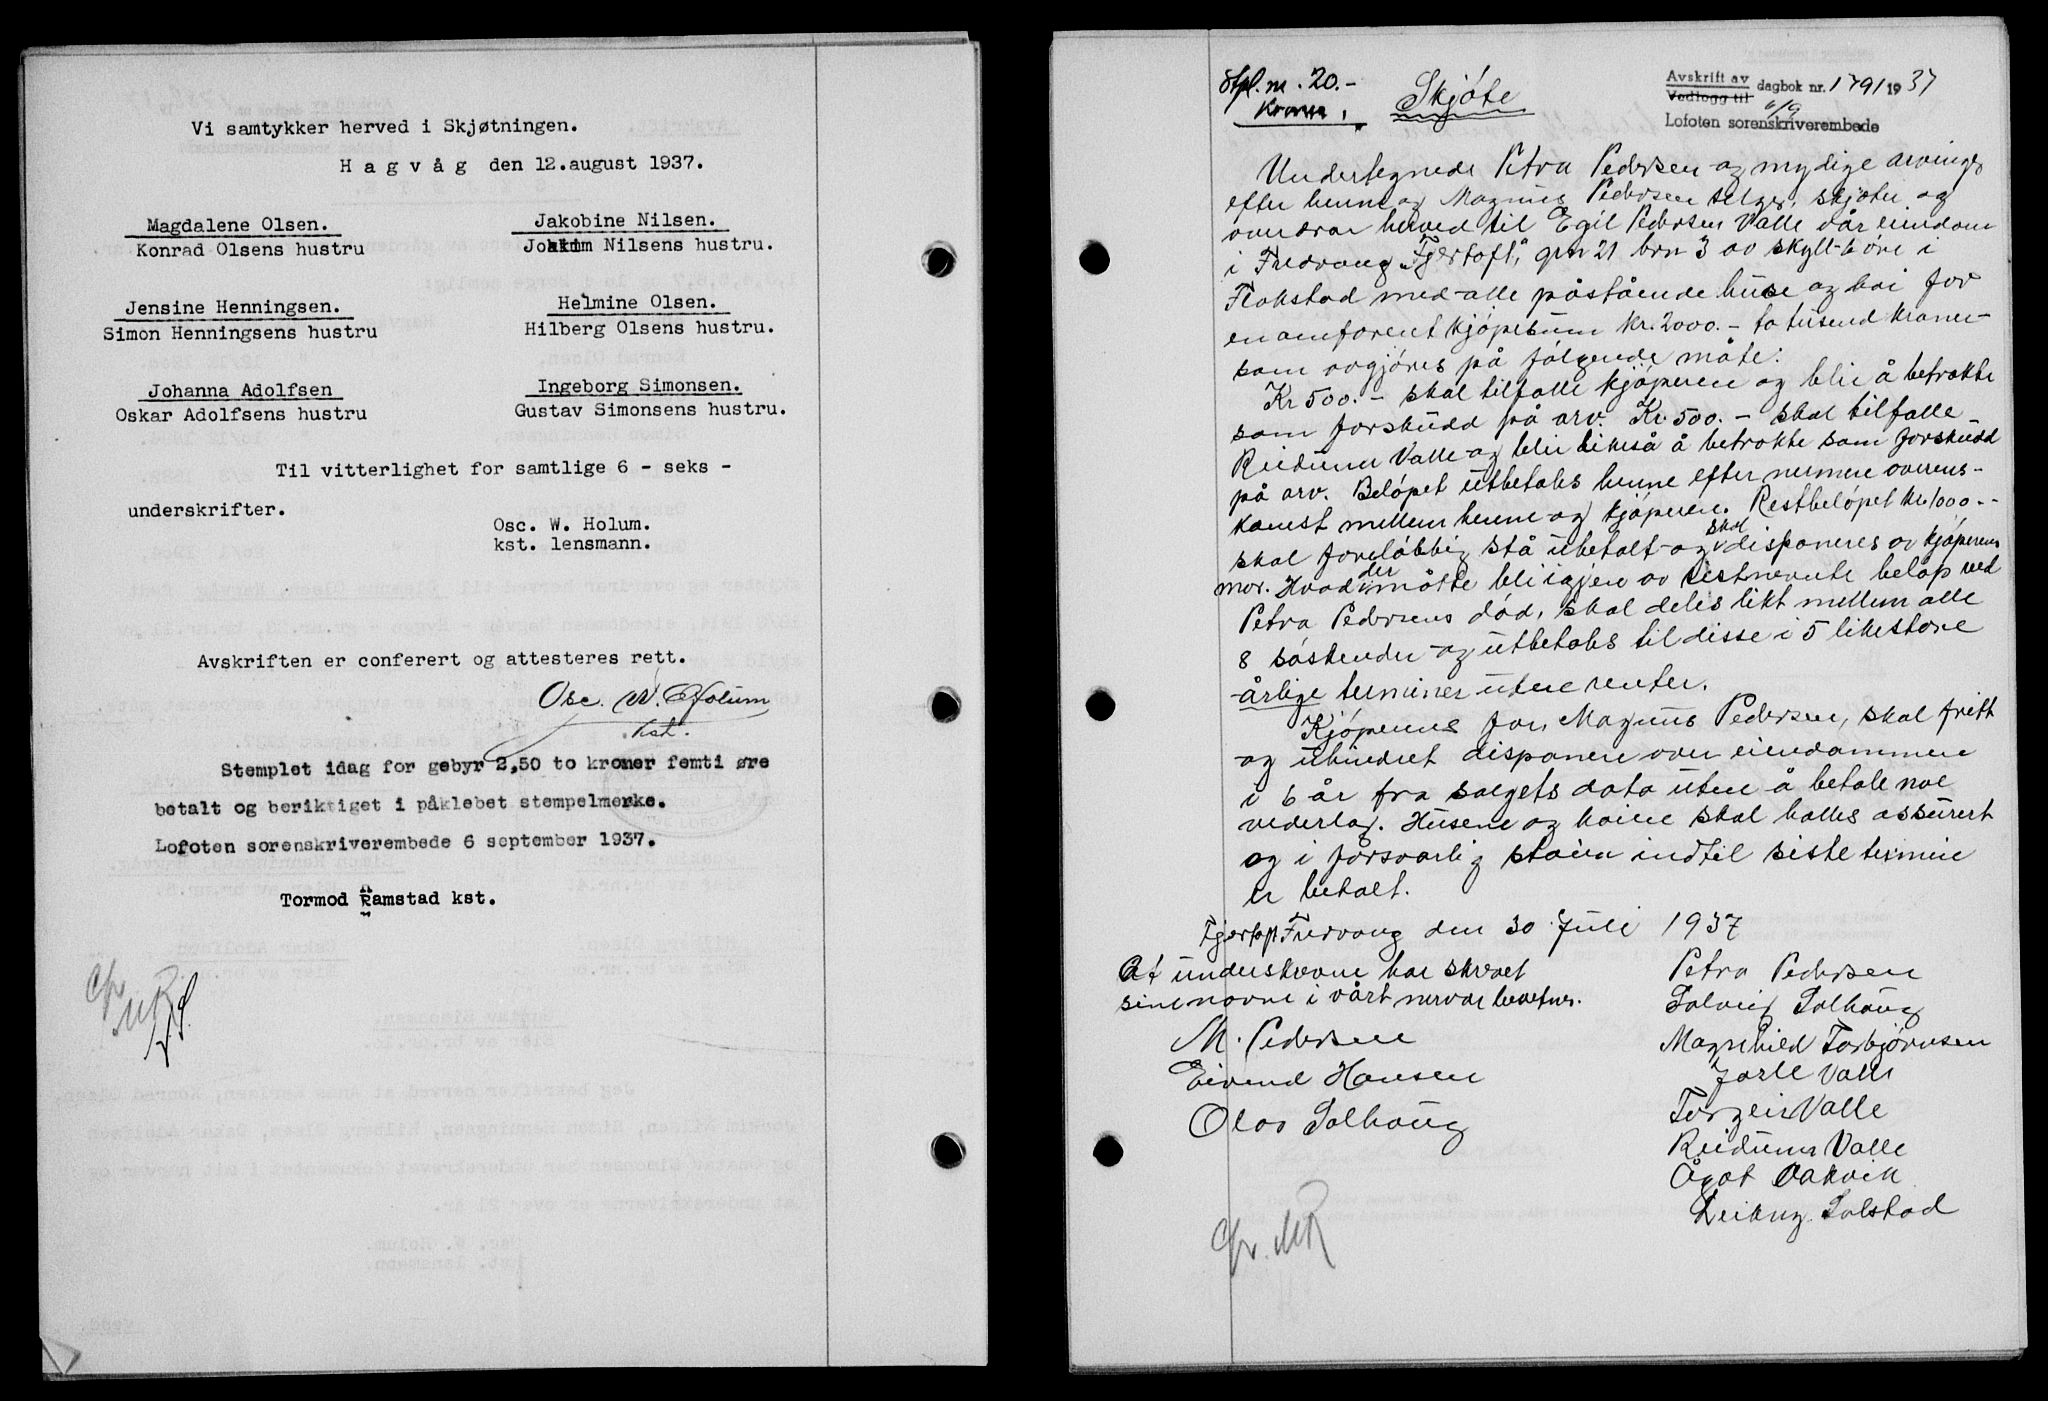 Vi samtykker herved i Skjøtningen.
Hagvåg den 12.august 1937.
Magdalene Olsen.
Konrad Olsens hustru
Jakobine Nilsen.
Joakim Nilsens hustru.
Jensine Henningsen.
Simon Henningsens hustru
Helmine Olsen.
Hilberg Olsens hustru.
Johanna Adolfsen
Oskar Adolfsens hustru
Ingeborg Simonsen.
Gustav Simonsens hustru.
Til vitterlighet for samtlige 6 - seks -
underskrifter.
Osc. W. Holum.
kst. lensmann.
Avskriften er conferert og attesteres rett.
Osc. W. Holum
kst.
Stemplet idag for gebyr 2,50 to kroner femti øre
betalt og beriktiget i påklebet stempelmerke.
Lofoten sorenskriverembede 6 september 1937.
Tormod Ramstad kst.
Stpl. m. 20.-
Kroner.
Skjøte
Avskrift av
Vedlegg til
dagbok nr. 1791 1937
6/9
Lofoten sorenskriverembede
Undertegnede Petra Pedersen og myndige arvinger
efter henne og Magnus Pedersen selger, skjøter og
overdrar herved til Egil Pedersen Valle vår eiendom
i Fredvang "Fjertoft", grn 21 brn 3 av skyld 6 øre i
Flakstad med alle påstående huse og kai for
en omforent kjøpesum kr. 2000.- to tusend kroner -
som avgjøres på følgende måte:
Kr 500.- skal tilfalle kjøperen og blir å betrakte
som forskudd på arv. Kr. 500.- skal tilfalle
Reidunn Valle og blir likeså å betrakte som forskudd
på arv. Beløpet utbetales henne efter nermere overens-
komst mellem henne og kjøperen. Restbeløpet kr. 1000.-
skal foreløbbig stå ubetalt og skal disponeres av kjøperens
mor. Hvad der måtte bli igjen av sistnevnte beløp ved
Petra Pedersens død, skal deles likt mellem alle
8 søskender og utbetales til disse i 5 likestore
årlige terminer uten renter.
Kjøperens far, Magnus Pedersen, skal fritt
og uhindret disponere over eiendommen
i 6 år fra salgets dato uten å betale noe
vederlag. Husene og kaien skal holdes assurert
og i forsvarlig stand indtil siste termin
er betalt.
Fjertoft Fredvang den 30 Juli 1937
At underskrevne har skrevet
sine navne i vårt nervær bevitnes.
M. Pedersen
Eivind Hansen
Olav Solhaug
Petra Pedersen
Solveig Solhaug
Magnhild Torbjørnsen
Jarle Valle
Torgeir Valle
Reidunn Valle
Ågot Vakvik
Solstad